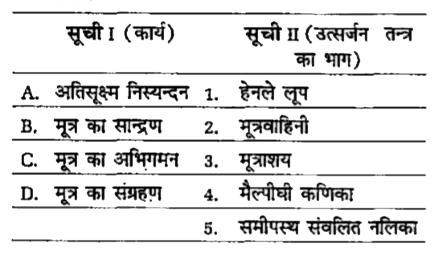 सूची I (कार्य) सूची II (उत्सर्जन तन्त्र
का भाग)
A. अतिसूक्ष्म निस्यन्दन 1. हेनले लूप
B. मूत्र का सान्द्रण 2. मूत्रवाहिनी
C. मूत्र का अभिगमन 3. मूत्राशय
D. मूत्र का संग्रहण 4. मैल्पीघी कणिका
5. समीपस्थ संवलित नलिका